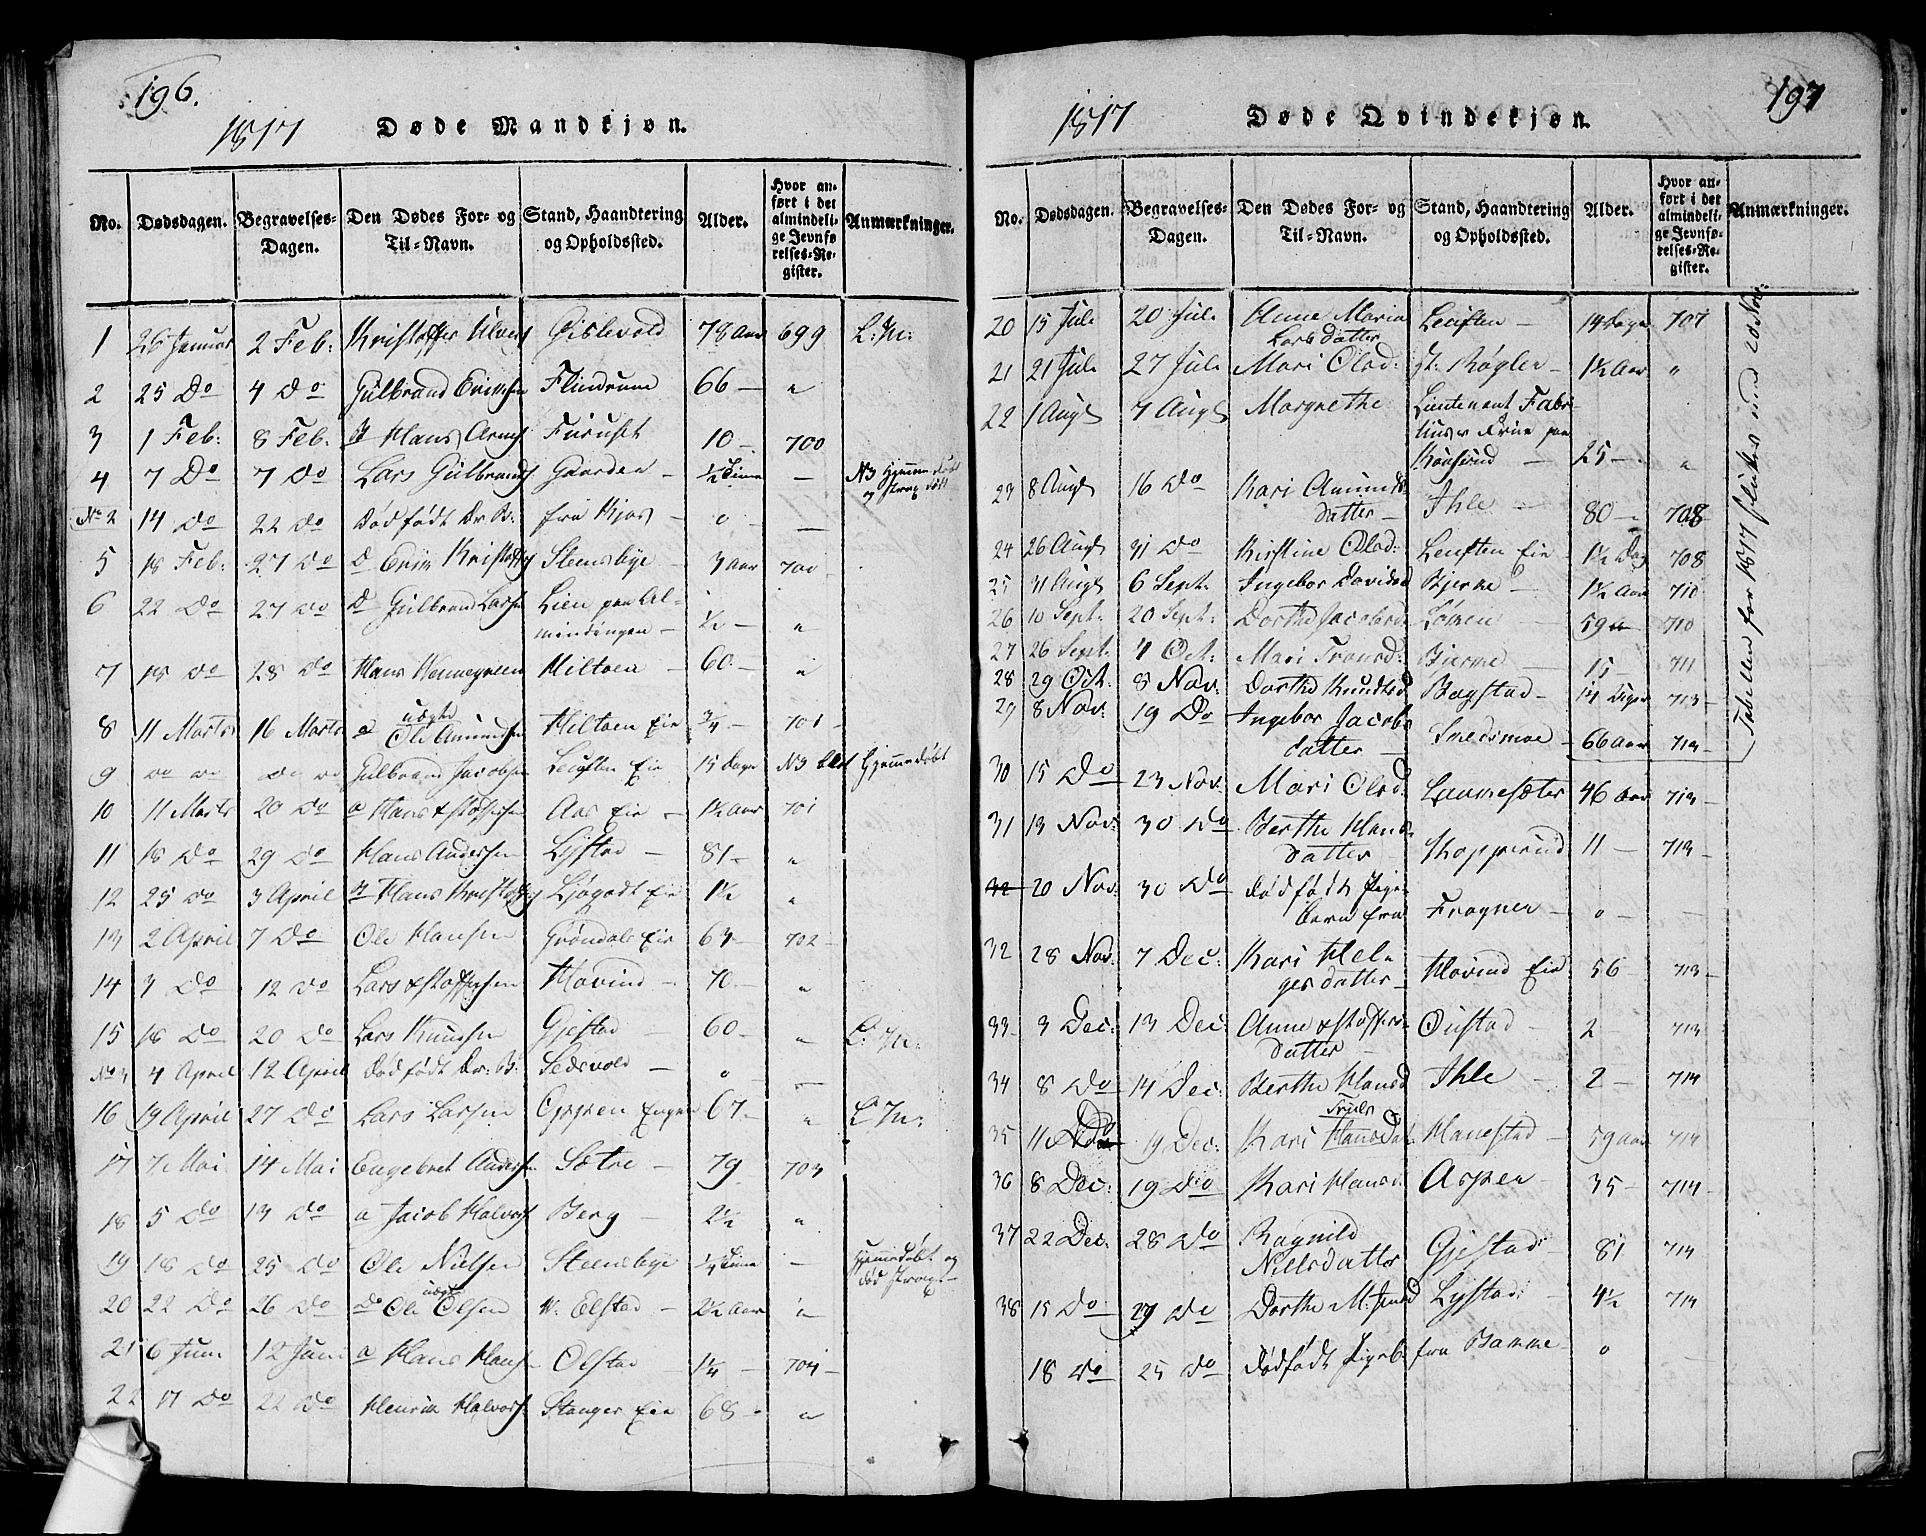 196.
1817 Døde Mandkjøn.
No. Dødsdagen. Begravelses-Dagen. Den Dødes For- og Til-Navn. Stand, Haandtering og Opholdssted. Alder. Hvor anført i det almindelige Jevnførelses-Register. Anmærkninger.
1 26 Januar 2 Feb: Kristoffer Gislevold 78 Aar 699
2 25 Do 4 Do Gulbrand Erichsen Flindrum 66 — "
3 1 Feb: 8 Feb: Hans Furuset 10 — 700
4 7 Do 7 Do Lars Gulbrands Gaarder — ½ Time — N3 Hjemmedøbt
og strax død
No 2 14 Do 22 Do Dødfødt Dr. B: fra Kjos — 0 —
5 18 Feb: 27 Do Kristoffs Stensbye — 3 Aar 700
6 22 Do 27 Do Gulbrand Larsen Lien paa Al-
mindingen — ½ — "
7 18 Do 28 Do Hans Hiltoen — 60 — "
8 11 Marts 16 Marts Ole Amundsen Hiltoen Eie ¾ — 701
9 do do do do Gulbrand Jacobsen Leuften Eie 15 Dage N3 Hjemmedøbt
10 11 Marts 20 Do Hans Xstoffersen Aas Eie — 1½ Aar 701
11 18 Do 29 Do Hans Andersen Lystad — 81 — "
12 25 do 3 April Hans Kristoffs Ljøgodt Eie 1½ "
13 2 April 7 Do Ole Hansen Grøndals Eie 63 — 702 —
14 3 Do 12 Do Lars Xstoffersen Hovind — 70 — "
15 18 Do 20 Do Lars Knudsen Gjestad — 60 — "
No 3 4 April 12 April Dødfødt Dr: B: Sedsvold — 0 —
16 19 April 27 Do Lars Larsen Oppen Engen 67 — "
17 7 Mai 14 Mai Engebret Andersen Sætre — 79 703
18 5 Do 13 Do Jacob Halvors Berg — 2½ "
19 18 Do 25 Do Ole Nielsen Steensbye ¼ Time — Hjemmedøbt og
død strax —
20 22 Do 26 Do Ole Olsen Elstad — 2½ Aar "
21 6 Juni 12 Juni Hans Hans Olstad — 1¼ 704 —
22 17 Do 22 Do Henrik Halvors Stanger Eie 68 — "
197
1817 Døde Qvindekjøn.
No. Dødsdagen. Begravelses-Dagen. Den Dødes For- og Til-Navn. Stand, Haandtering og Opholdssted. Alder. Hvor anført i det almindelige Jevnførelses-Register. Anmærkninger.
20 15 Juli 20 Juli Anne Maria Leuften — 14 Dage 707
Lars datter
21 21 Juli 27 Juli Mari Olsd: Røgler — 1½ Aar "
22 1 Augs 7 Augs Margrethe Lieutenant Fabri-
paa
25 — "
23 8 Augs 16 Do Kari Amunds Ihle — 80 — 708
datter —
24 26 Augs 31 Do Kirstine Olsd: Leuften Eie 1½ Dag 708
25 31 Augs 6 Sept: Ingebor Davidsd Bjerke — 1½ Aar 710
26 10 Sept: 20 Sept: Dorthe Jacobsd Lømen 59 710
27 26 Sept: 4 Oct: Mari Fransd: Bjerke — 15 — 711
28 29 Oct: 8 Nov: Dorthe Knudsd Bogstad — 14 Dage 713 —
29 8 Nov: 19 Do Ingebor Jacobs
datter — Smedsmoe — 66 Aar 713 —
Tabellen for 1817 sluttes med 20 Nov:
30 15 Do 23 Nov: Mari Olsd: Lannesæter 46 Aar 713 —
31 13 Nov: 30 Do Berthe Hans-
datter — Kopperud 11 — 713 —
32 20 Nov: 30 Do dødfødt Pige-
barn fra Frogner — " — —
32 28 Nov: 7 Dec: Kari Hel-
gesdatter — Hovind Eie 56 — 713 —
33 3 Dec: 13 Dec: Anne Xstoffers-
datter — Øistad — 2 713 —
34 8 Do 14 Dec: Berthe Hansd Ihle — 2 — 714
Truls
35 11 Do 19 Dec: Kari Hansdat. Hanestad — 59 Aar 714
36 8 Dec: 19 Do Kari Hansd Aspen — 35 — 714 —
37 22 Dec: 28 Do Ragnild
Nielsdatter Gjestad 81 714
38 15 Do 29 Do Dorthe M. Lystad — 4½ 714
18 Do 25 Do Dødfødt Pigeb: fra Bamme — 0 —